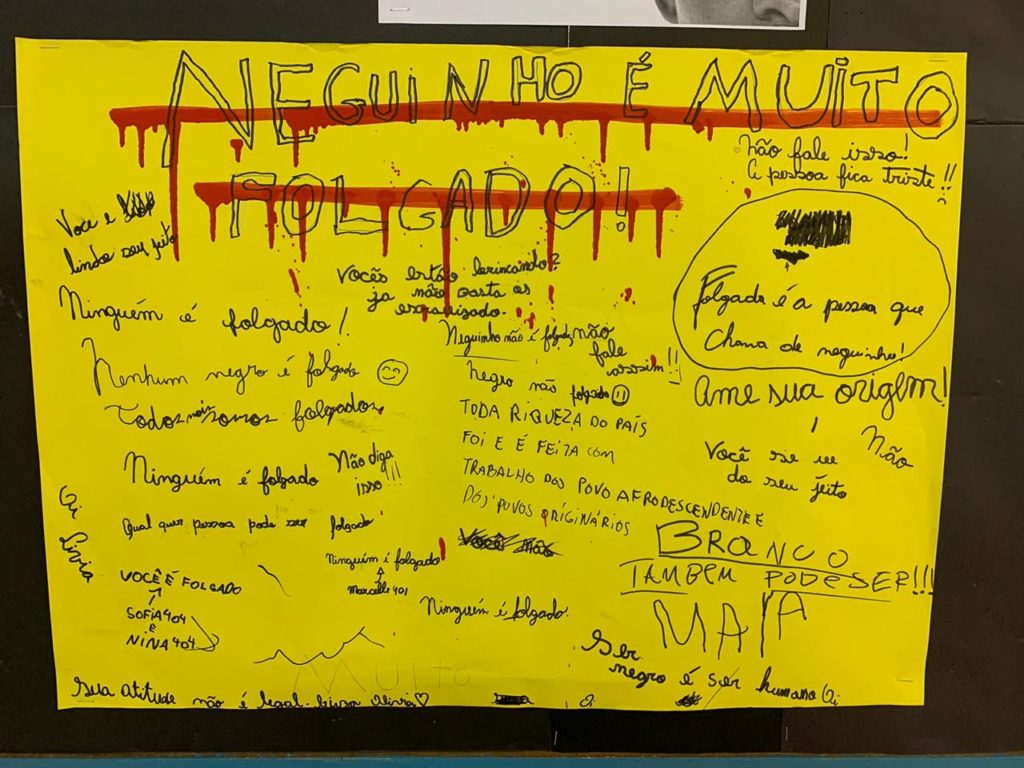 NEGUINHO É MUITO
FOLGADO!
Não fale isso!
A pessoa fica triste!!
Você e
linda seu jeito
Vocês estão brincando?
ja não basta os
Folgada é a pessoa que
Chama de neguinho!
Ninguém é folgado!
Neguinho não é folgado não
fale
assim!!
Nenhum negro é folgado
negro não folgado
Ame sua origem!
Todos nois somos folgados
TODA RIQUEZA DO PAÍS
FOI E É FEITA COM
TRABALHO DOS POVO AFRODESCENDENTE E
DOS POVOS ORIGINÁRIOS
Você
do seu jeito
Não
Ninguém é folgado
Não diga
isso!!!
Qual quer pessoa pode ser folgado
Gi
Livia
Você não
BRANCO
TAMBEM PODE SER!!!
MAIA
Ninguém é folgado!
Marcelle 401
VOCÊ É FOLGADO
SOFIA 404
E
NINA 404
Ninguém é folgado.
MUITO
Ser
negro é ser humano Gi
Sua atitude não é legal. Oi